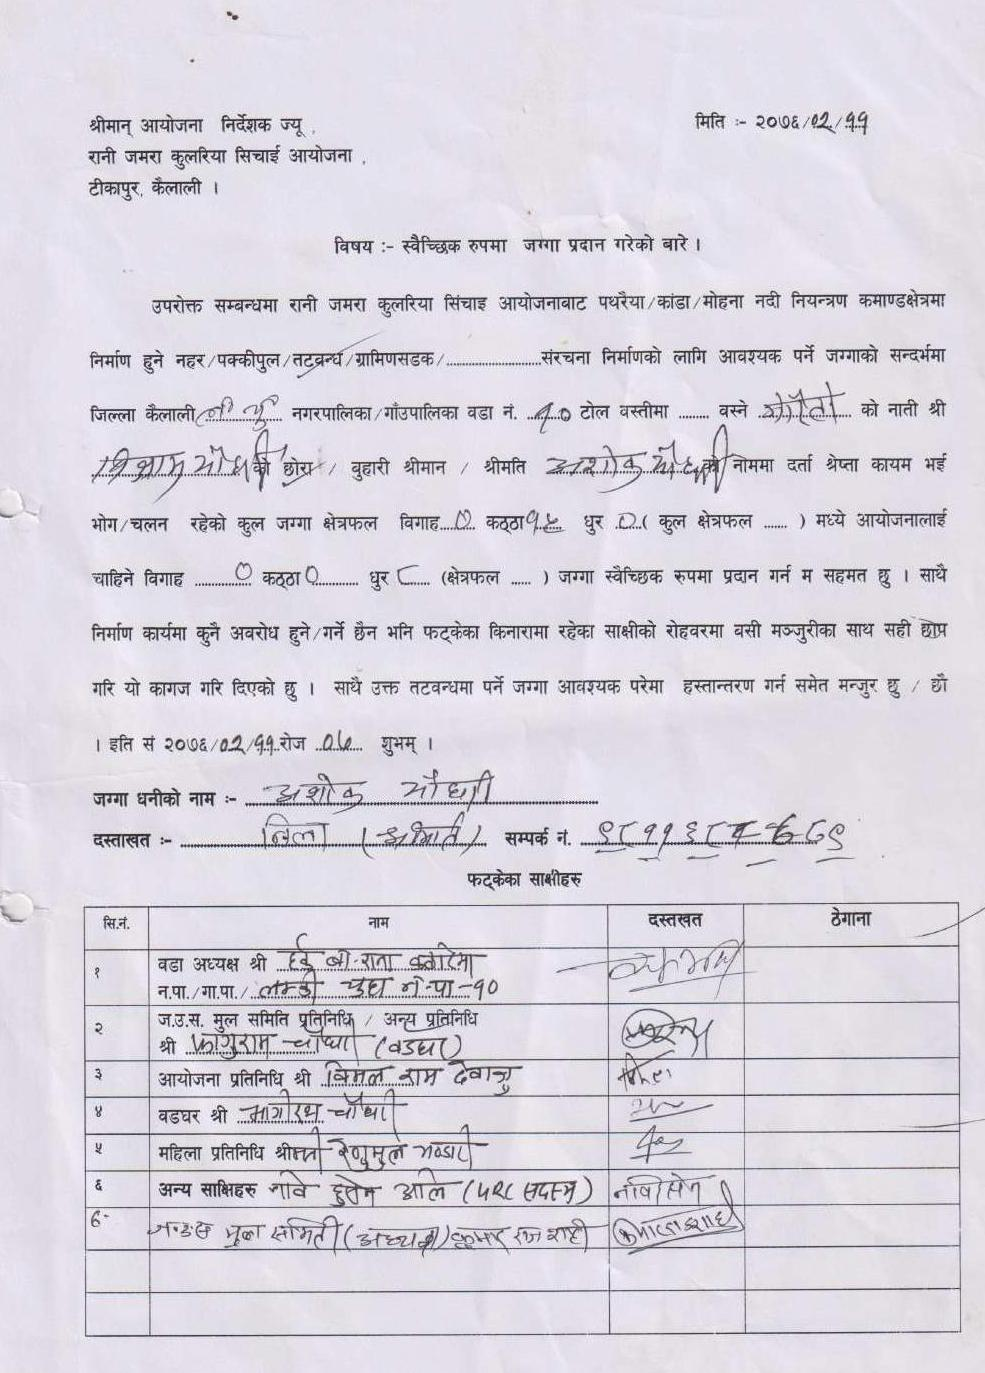 श्रीमान् आयोजना निर्देशक ज्यू ,
मिति :- २०७६/०२/११
रानी जमरा कुलरिया सिचाई आयोजना ,
टीकापुर, कैलाली ।
विषय :- स्वैच्छिक रुपमा जग्गा प्रदान गरेको बारे ।
उपरोक्त सम्बन्धमा रानी जमरा कुलरिया सिंचाइ आयोजनाबाट पथरैया/कांडा/मोहना नदी नियन्त्रण कमाण्डक्षेत्रमा
निर्माण हुने नहर/पक्कीपुल/तटवन्ध/ग्रामिणसडक/........................संरचना निर्माणको लागि आवश्यक पर्ने जग्गाको सन्दर्भमा
जिल्ला कैलाली नगरपालिका/गाँउपालिका वडा नं. १० टोल वस्तीमा ........ वस्ने को नाती श्री
चौधरी को छोरा / वुहारी श्रीमान / श्रीमति अशोक चौधरी को नाममा दर्ता श्रेप्ता कायम भई
भोग/चलन रहेको कुल जग्गा क्षेत्रफल विगाह 0 कठ्ठा १५ धुर 0 ( कुल क्षेत्रफल ...... ) मध्ये आयोजनालाई
चाहिने विगाह 0 कठ्ठा 0 धुर ८ (क्षेत्रफल ..... ) जग्गा स्वैच्छिक रुपमा प्रदान गर्न म सहमत छु । साथै
निर्माण कार्यमा कुनै अवरोध हुने/गर्ने छैन भनि फट्केका किनारामा रहेका साक्षीको रोहवरमा वसी मञ्जुरीका साथ सही छाप
गरि यो कागज गरि दिएको छु । साथै उक्त तटवन्धमा पर्ने जग्गा आवश्यक परेमा हस्तान्तरण गर्न समेत मन्जुर छु / छौ
। इति सं २०७६/०२/११ रोज शुभम् ।
जग्गा धनीको नाम :- अशोक चौधरी
दस्ताखत :- सम्पर्क नं.
फट्केका साक्षीहरु
सि.नं. नाम दस्तखत ठेगाना
१ वडा अध्यक्ष श्री
न.पा./गा.पा./ न.पा-१०
२ ज.उ.स. मुल समिति प्रतिनिधि / अन्य प्रतिनिधि
श्री फागुराम चौधरी (वडघर)
३ आयोजना प्रतिनिधि श्री विमल राम
४ वडघर श्री चौधरी
५ महिला प्रतिनिधि श्रीमती
६ अन्य साक्षिहरु
मुल समिती (अध्यक्ष)